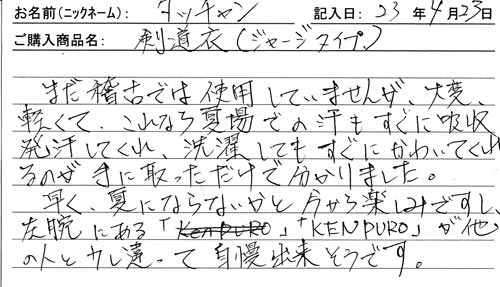 お名前(ニックネーム): タッチャン 記入日: 23 年 4 月 23 日
ご購入商品名: 剣道衣(ジャージタイプ)
まだ稽古では使用していませんが、大変、
軽くて、これなら夏場での汗もすぐに吸収
発汗してくれ、洗濯してもすぐにかわいてくれ
るのが手に取っただけで分かりました。
早く、夏にならないかと今から楽しみですし、
左腕にある「KENPURO」「KENDURO」が他
の人とウレ違って自慢出来そうです。